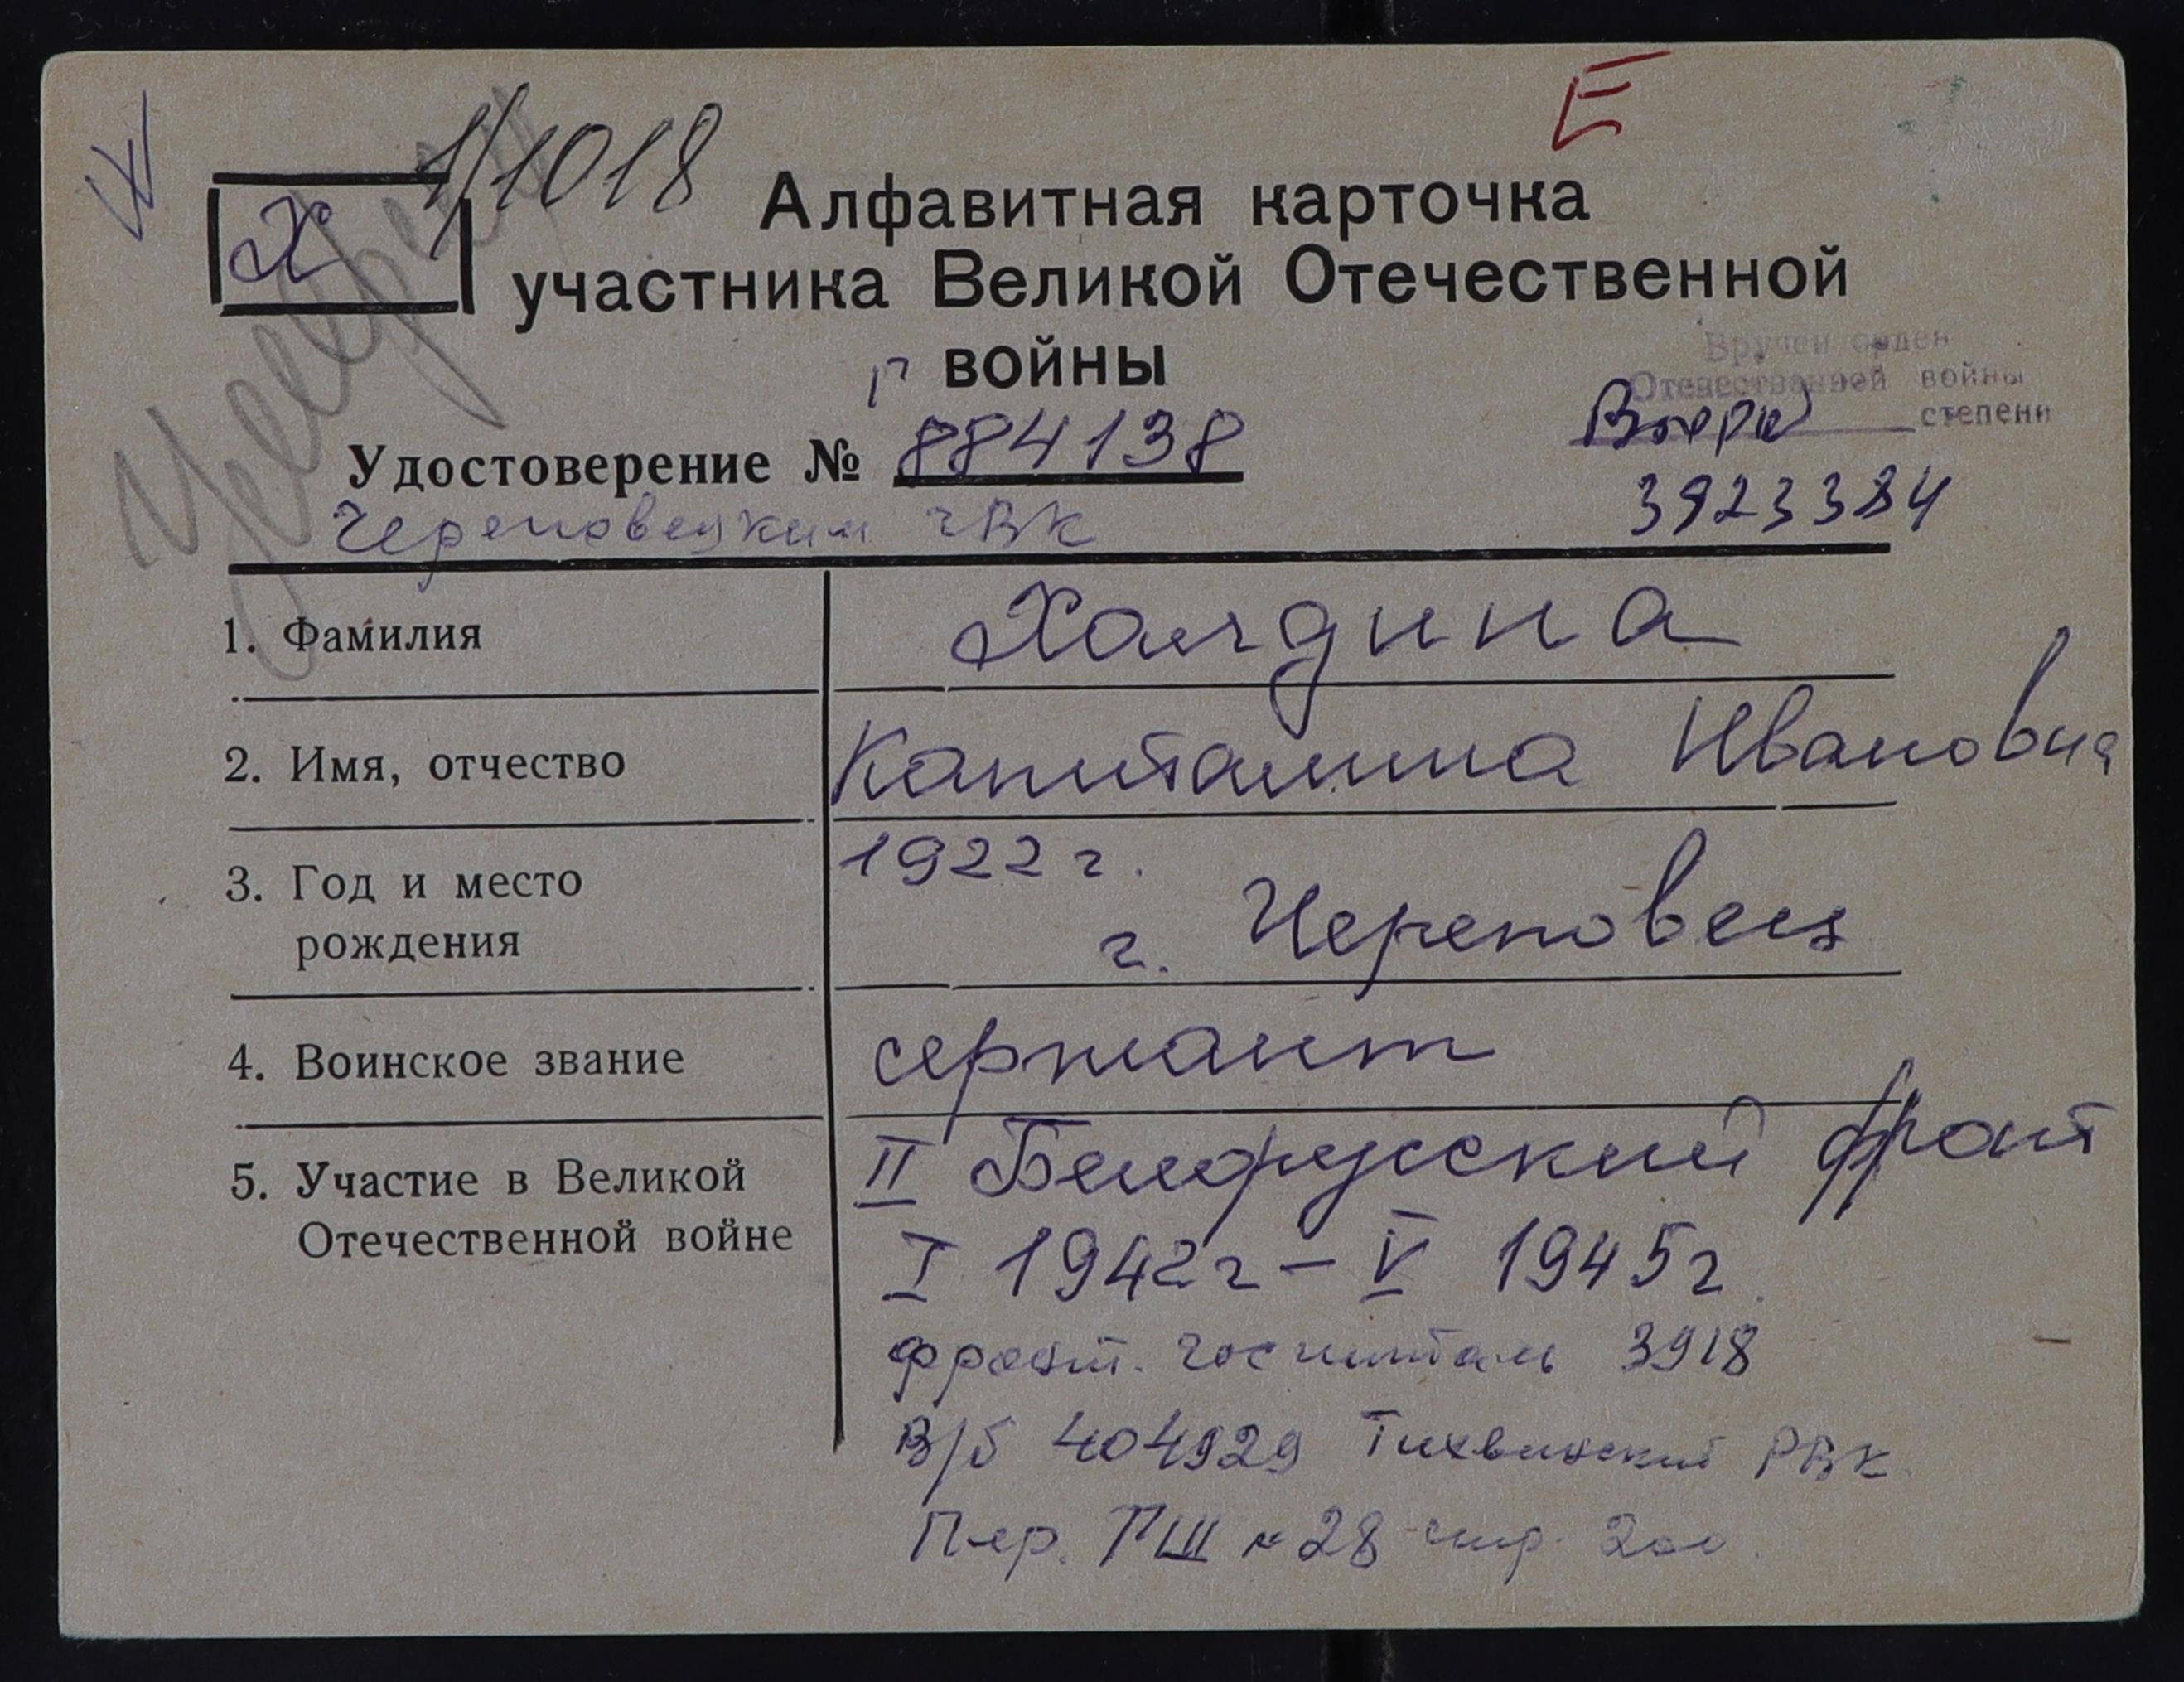 1/1018
Е
Х
Алфавитная карточка
участника Великой Отечественной
войны
Вручен орден
Отечественной войны
степени
Удостоверение № 884138
3923384
Череповецким ГВК
1. Фамилия Халдина
2. Имя, отчество Капиталина Ивановна
3. Год и место 1922 г.
рождения г. Череповец
4. Воинское звание сержант
5. Участие в Великой II Белорусский фронт
Отечественной войне I 1942г – V 1945г.
фронт. госпиталь 3918
В/б 404929 Тихвинский РВК
Пер. ГШ № 28 стр. 200